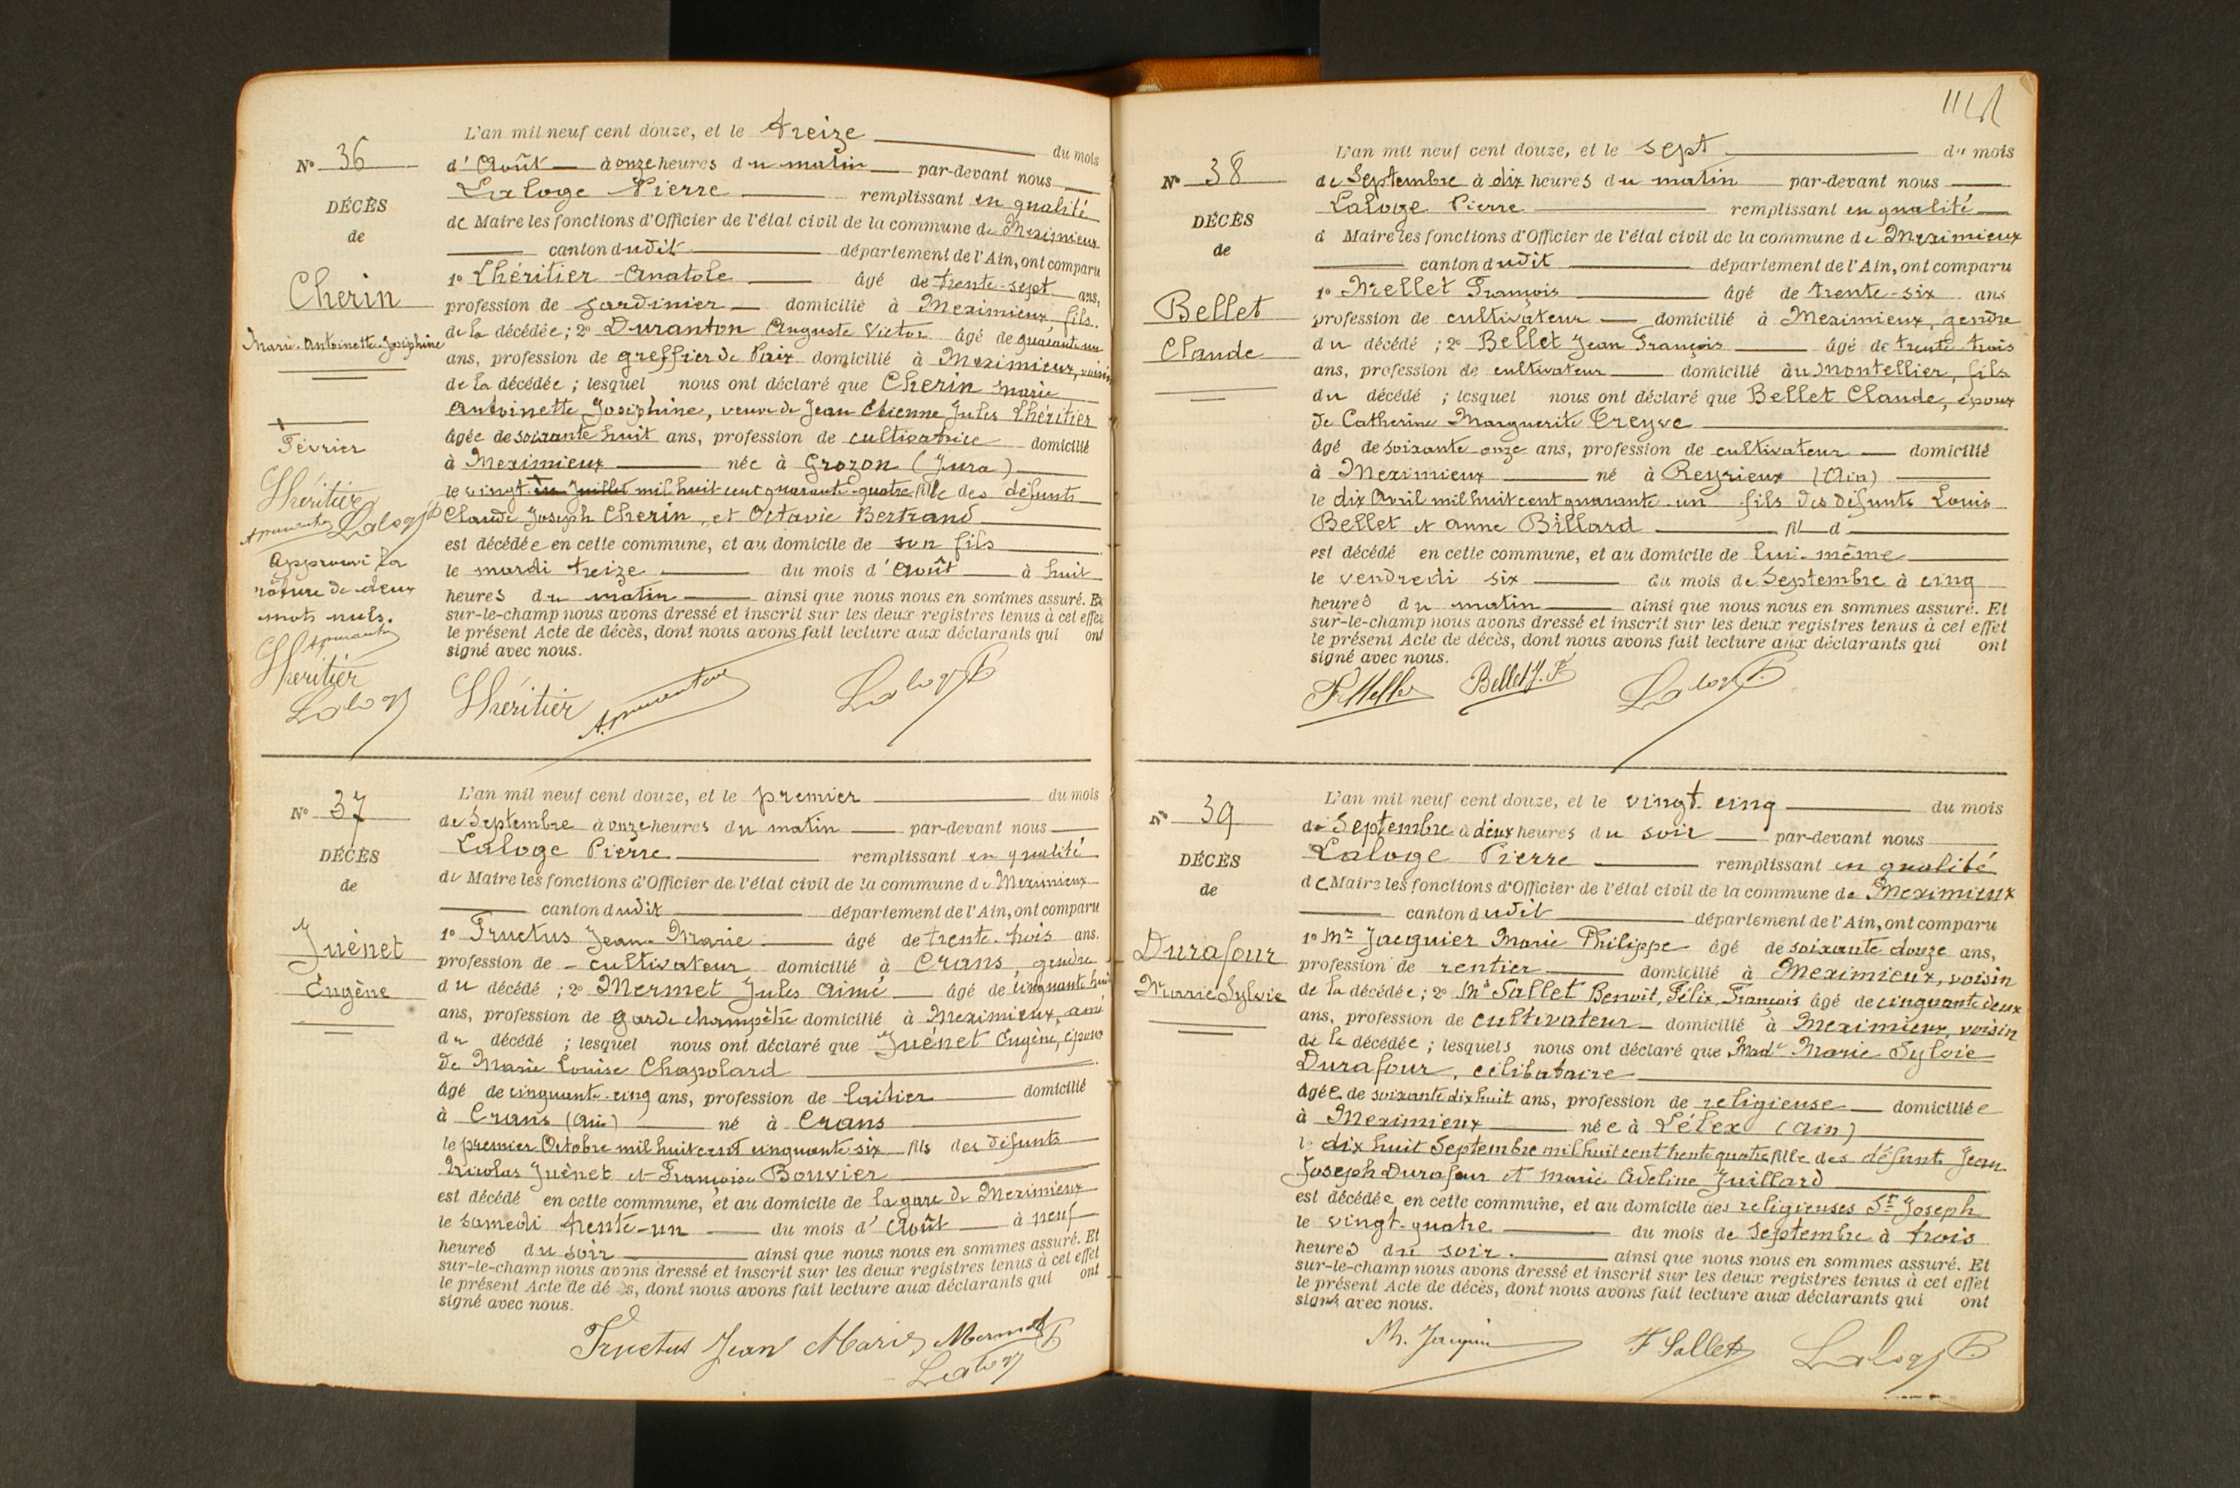 N° 36
DÉCÈS
de
Cherin
Marie-Antoinette-Joséphine
Février
Lhéritier
Laloge P
Approuvé la
rature de deux
mots nuls.
Lhéritier
Laloge
L'an mil neuf cent douze, et le treize du mois
d'Août à onze heures du matin par-devant nous
Laloge Pierre remplissant en qualité
de Maire les fonctions d'Officier de l'état civil de la commune de Meximieux
canton dudit département de l'Ain, ont comparu
1° Lhéritier Anatole âgé de trente-sept ans,
profession de jardinier domicilié à Meximieux, fils
de la décédée ; 2° Duranton Auguste Victor âgé de quarante un
ans, profession de greffier de Paix domicilié à Meximieux, voisin
de la décédée ; lesquel nous ont déclaré que Cherin Marie
Antoinette Joséphine, veuve de Jean Etienne Jules Lhéritier
âgée de soixante huit ans, profession de cultivatrice domicilié
à Meximieux née à Grozon (Jura)
le vingt un Juillet mil huit cent quarante-quatre fille des défunts
Claude Joseph Cherin, et Octavie Bertrand
est décédée en cette commune, et au domicile de son fils
le mardi treize du mois d'Août à huit
heures du matin ainsi que nous nous en sommes assuré. Et
sur-le-champ nous avons dressé et inscrit sur les deux registres tenus à cet effet
le présent Acte de décès, dont nous avons fait lecture aux déclarants qui ont
signé avec nous.
Lhéritier Laloge P
N° 37
DÉCÈS
de
Juénet
Eugène
L'an mil neuf cent douze, et le premier du mois
de Septembre à onze heures du matin par-devant nous
Laloge Pierre remplissant en qualité
de Maire les fonctions d'Officier de l'état civil de la commune de Meximieux
canton dudit département de l'Ain, ont comparu
1° Fructus Jean-Marie âgé de trente-trois ans.
profession de cultivateur domicilié à Crans, gendre
du décédé ; 2° Mermet Jules Aimé âgé de cinquante huit
ans, profession de garde champêtre domicilié à Meximieux, ami
du décédé ; lesquel nous ont déclaré que Juénet Eugène, époux
de Marie Louise Chapolard
âgé de cinquante-cinq ans, profession de laitier domicilié
à Crans (Ain) né à Crans
le premier Octobre mil huit cent cinquante six fils des défunts
Nicolas Juénet et Françoise Bouvier
est décédé en cette commune, et au domicile de la gare de Meximieux
le samedi trente-un du mois d'Août à neuf
heures du soir ainsi que nous nous en sommes assuré. Et
sur-le-champ nous avons dressé et inscrit sur les deux registres tenus à cet effet
le présent Acte de dé s, dont nous avons fait lecture aux déclarants qui ont
signé avec nous.
Fructus Jean Marie Mermet
Laloge P
N° 38
DÉCÈS
de
Bellet
Claude
L'an mil neuf cent douze, et le sept du mois
de Septembre à dix heures du matin par-devant nous
Laloge Pierre remplissant en qualité
d Maire les fonctions d'Officier de l'état civil de la commune de Meximieux
canton dudit département de l'Ain, ont comparu
1° Mellet François âgé de trente-six ans
profession de cultivateur domicilié à Meximieux, gendre
du décédé ; 2° Bellet Jean François âgé de trente-trois
ans, profession de cultivateur domicilié au Montellier, fils
du décédé ; lesquel nous ont déclaré que Bellet Claude, époux
de Catherine Marguerite Treyve
âgé de soixante onze ans, profession de cultivateur domicilié
à Meximieux né à Reyrieux (Ain)
le dix Avril mil huit cent quarante-un fils des défunts Louis
Bellet et Anne Billard fil d
est décédé en cette commune, et au domicile de lui-même
le vendredi six du mois de Septembre à cinq
heures du matin ainsi que nous nous en sommes assuré. Et
sur-le-champ nous avons dressé et inscrit sur les deux registres tenus à cet effet
le présent Acte de décès, dont nous avons fait lecture aux déclarants qui ont
signé avec nous.
F Mellet Bellet J. F Laloge P.
N° 39
DÉCÈS
de
Durafour
Marie Sylvie
L'an mil neuf cent douze, et le vingt-cinq du mois
de Septembre à deux heures du soir par-devant nous
Laloge Pierre remplissant en qualité
de Maire les fonctions d'Officier de l'état civil de la commune de Meximieux
canton dudit département de l'Ain, ont comparu
1° Mr Jacquier Marie Philippe âgé de soixante douze ans,
profession de rentier domicilié à Meximieux, voisin
de la décédée ; 2° Mr Sallet Benoit, Félix, François âgé de cinquante deux
ans, profession de cultivateur domicilié à Meximieux, voisin
de la décédée ; lesquels nous ont déclaré que Made Marie Sylvie
Durafour, célibataire
âgée de soixante dix huit ans, profession de religieuse domiciliée
à Meximieux née à Lélex (Ain)
le dix huit Septembre mil huit cent trente quatre fille des défunts Jean
Joseph Durafour et Marie Adeline Juillard
est décédée en cette commune, et au domicile des religieuses St Joseph
le vingt-quatre du mois de Septembre à trois
heures du soir. ainsi que nous nous en sommes assuré. Et
sur-le-champ nous avons dressé et inscrit sur les deux registres tenus à cet effet
le présent Acte de décès, dont nous avons fait lecture aux déclarants qui ont
signé avec nous.
Ph. Jacquier F Sallet Laloge P.